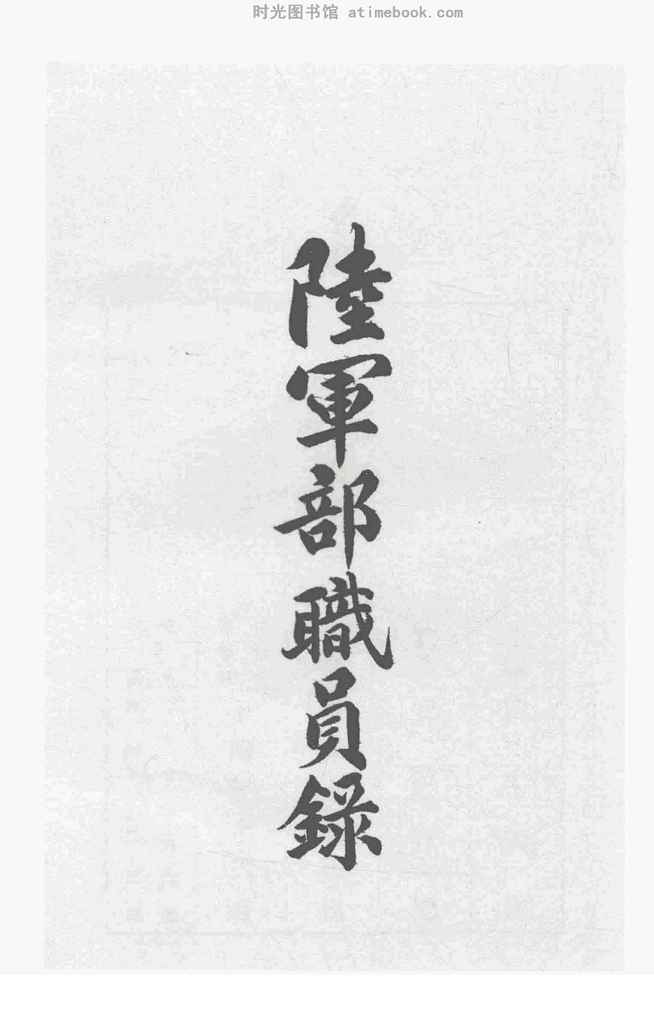 时光图书馆 atimebook.com
陸軍部職員錄